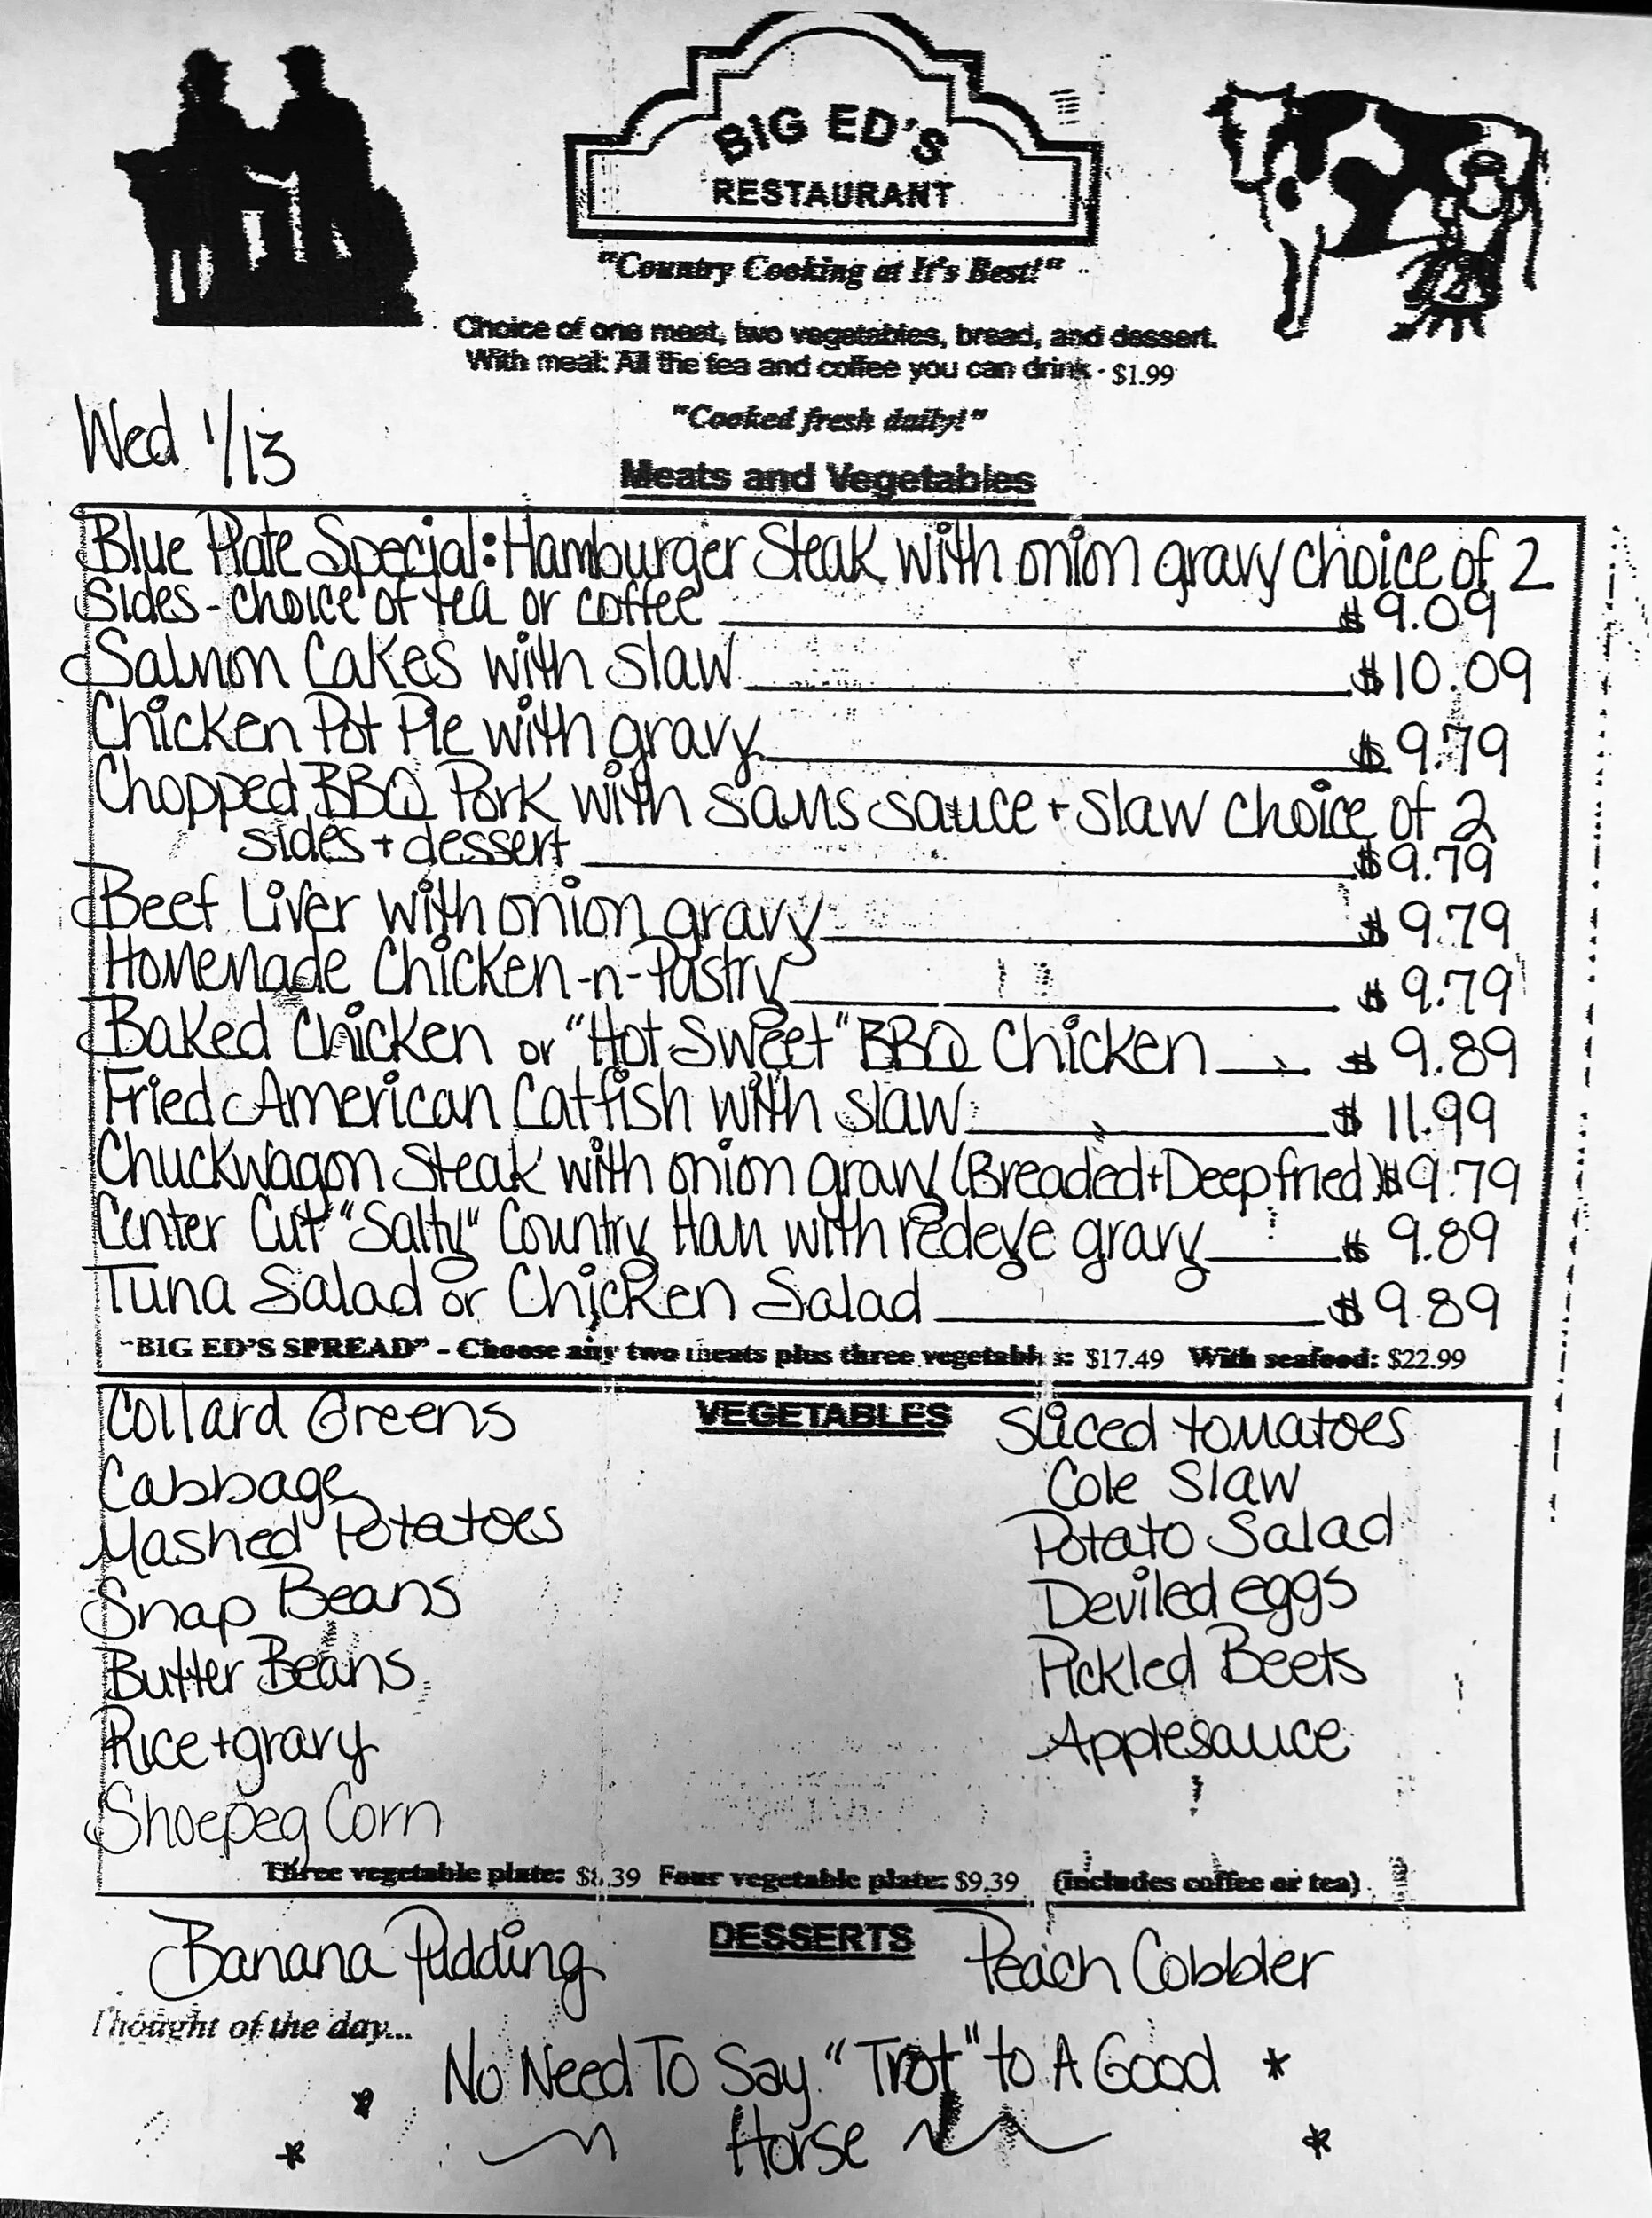 BIG ED'S
RESTAURANT
"Country Cooking at It's Best!"
Choice of one meat, two vegetables, bread, and dessert.
With meal: All the tea and coffee you can drink - $1.99
"Cooked fresh daily!"
Wed 1/13
Meats and Vegetables
Blue Plate Special: Hamburger Steak with onion gravy choice of 2
Sides - choice of tea or coffee $9.09
Salmon Cakes with slaw $10.09
Chicken Pot Pie with gravy $9.79
Chopped BBQ Pork with Sams sauce + slaw choice of 2
sides + dessert $9.79
Beef Liver with onion gravy $9.79
Homemade Chicken-n-Pastry $9.79
Baked Chicken or "Hot Sweet" BBQ Chicken $9.89
Fried American Catfish with slaw $11.99
Chuckwagon Steak with onion gravy (Breaded + Deep fried) $9.79
Center Cut "Salty" Country Ham with redeye gravy $9.89
Tuna Salad or Chicken Salad $9.89
"BIG ED'S SPREAD" - Choose any two meats plus three vegetables: $17.49 With seafood: $22.99
VEGETABLES
Collard Greens
Cabbage
Mashed Potatoes
Snap Beans
Butter Beans
Rice + gravy
Shoepeg Corn
Sliced tomatoes
Cole Slaw
Potato Salad
Deviled eggs
Pickled Beets
Applesauce
Three vegetable plate: $8.39 Four vegetable plate: $9.39 (includes coffee or tea)
DESSERTS
Banana Pudding Peach Cobbler
Thought of the day...
No Need To Say "Trot" to A Good
Horse